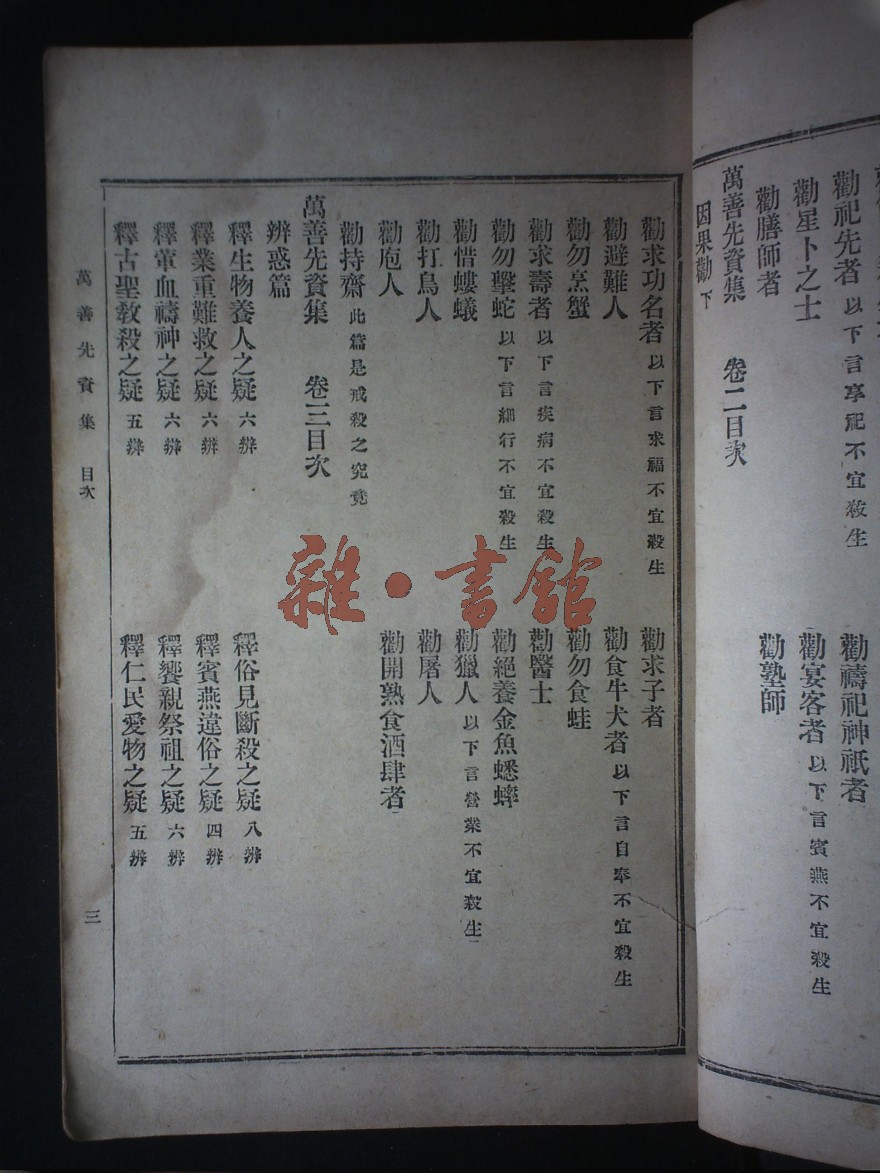 勸祀先者 以下言享祀不宜殺生 勸禱祀神祇者
勸星卜之士 勸宴客者 以下言賓燕不宜殺生
勸膳師者 勸塾師
萬善先資集 卷二目次
因果勸下
勸求功名者 以下言求福不宜殺生 勸求子者
勸避難人 勸食牛犬者 以下言自奉不宜殺生
勸勿烹蟹 勸勿食蛙
勸求壽者 以下言疾病不宜殺生 勸醫士
勸勿擊蛇 以下言細行不宜殺生 勸絕養金魚蟋蟀
勸惜螻蟻 勸獵人 以下言營業不宜殺生
勸打鳥人 勸屠人
勸庖人 勸開熟食酒肆者
勸持齋 此篇是戒殺之究竟
萬善先資集 卷三目次
辨惑篇
釋生物養人之疑 六辨 釋俗見斷殺之疑 八辨
釋業重難救之疑 六辨 釋賓燕違俗之疑 四辨
釋葷血禱神之疑 六辨 釋饗親祭祖之疑 六辨
釋古聖教殺之疑 五辨 釋仁民愛物之疑 五辨
萬善先資集 目次 三
雜·書館